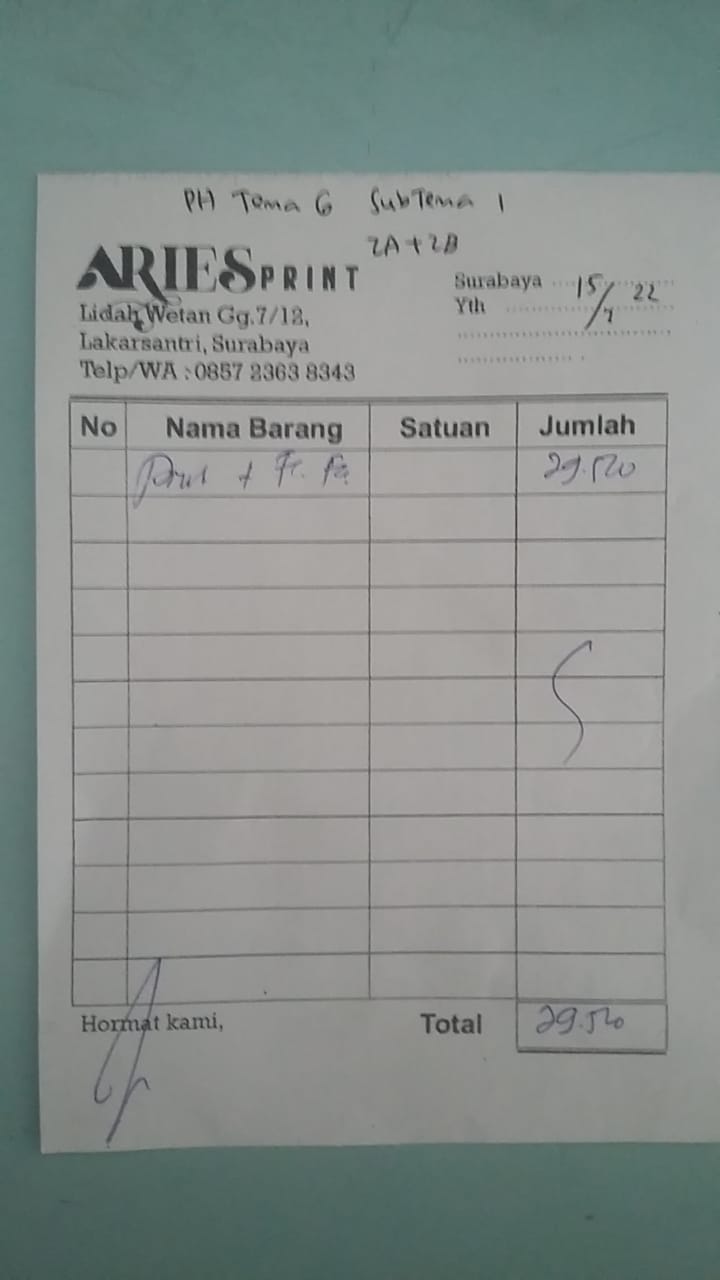 PH Tema 6 SubTema 1
2A + 2B
ARIES PRINT
Lidah Wetan Gg.7/12,
Lakarsantri, Surabaya
Telp/WA : 0857 2363 8343
Surabaya 15/ 22
Yth
No Nama Barang Satuan Jumlah
Print + 29.500
Hormat kami,
Total 29.500